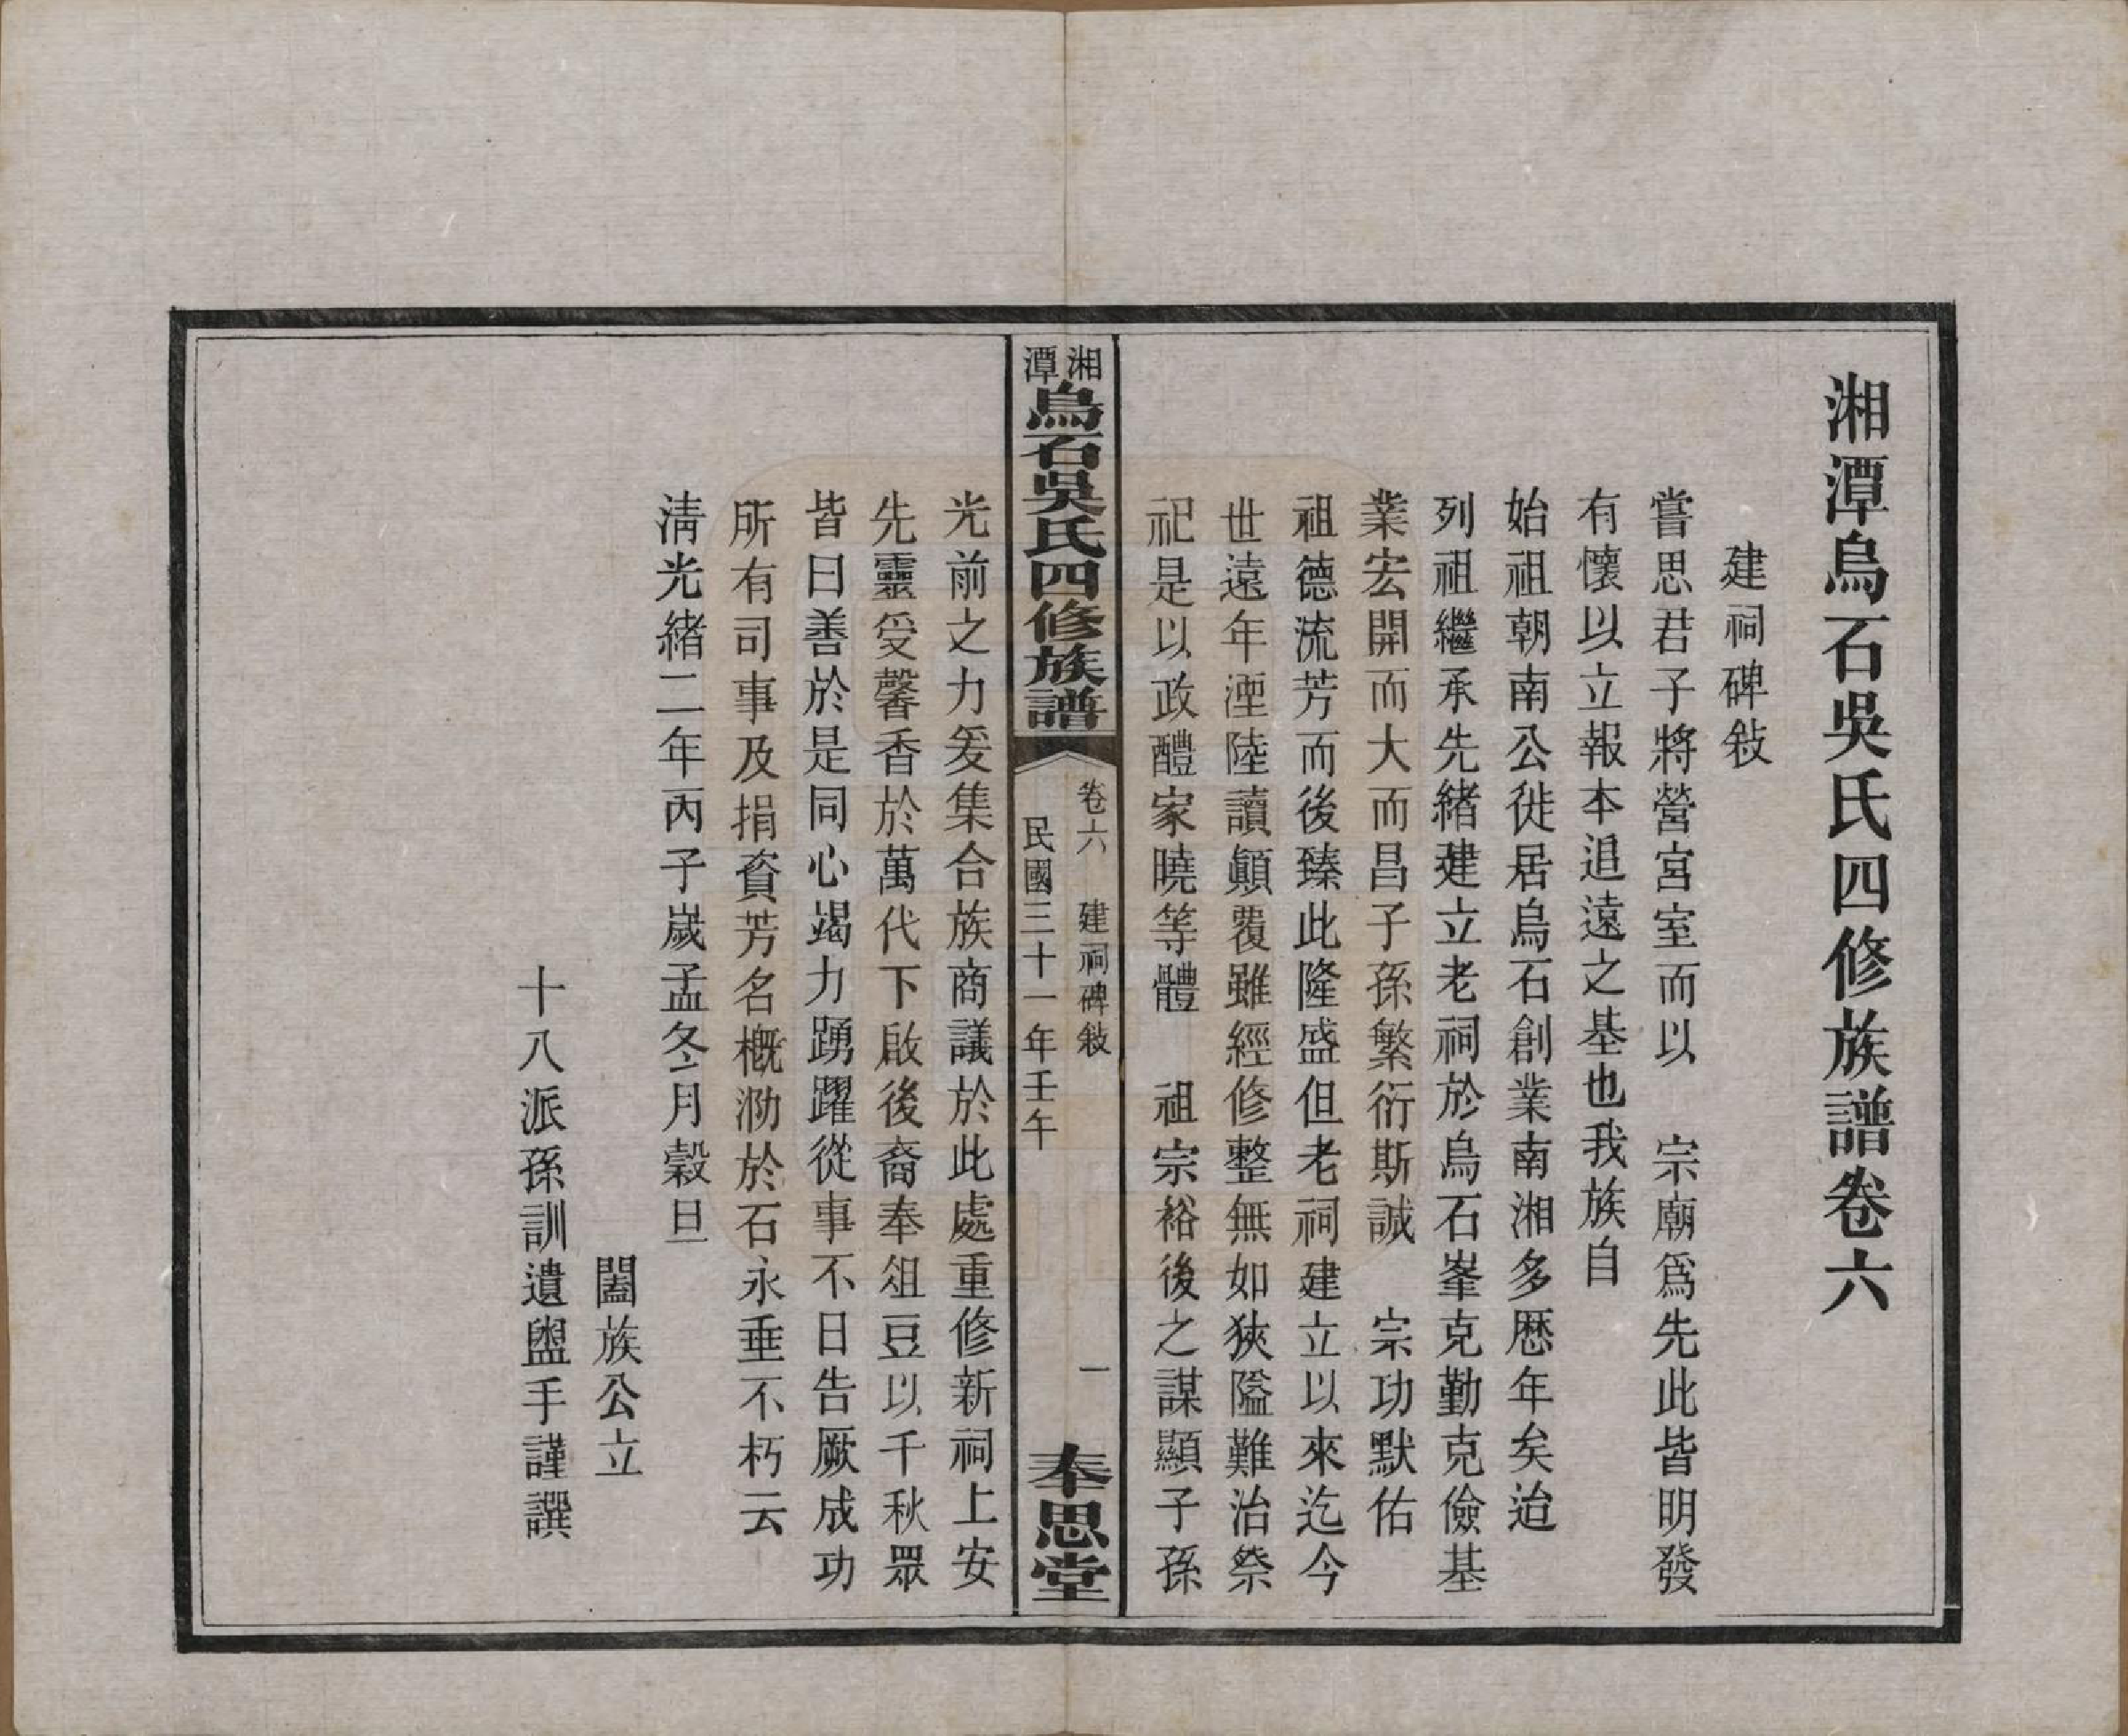 湘潭烏石吳氏四修族譜卷六
建祠碑敍
嘗思君子將營宮室而以　宗廟爲先此皆明發
有懷以立報本追遠之基也我族自
始祖朝南公徙居烏石創業南湘多歷年矣迨
列祖繼承先緒建立老祠於烏石峯克勤克儉基
業宏開而大而昌子孫繁衍斯誠　宗功默佑
祖德流芳而後臻此隆盛但老祠建立以來迄今
世遠年湮陸讀顚覆雖經修整無如狹隘難治祭
祀是以政醴家曉等體　祖宗裕後之謀顯子孫
湘潭烏石吳氏四修族譜
卷六　建祠碑敍　一
民國三十一年壬午
奉思堂
光前之力爰集合族商議於此處重修新祠上安
先靈受馨香於萬代下啟後裔奉俎豆以千秋眾
皆曰善於是同心竭力踴躍從事不日告厥成功
所有司事及捐資芳名概泐於石永垂不朽云
淸光緒二年丙子嵗孟冬月穀旦
闔族公立
十八派孫訓遺盥手謹譔